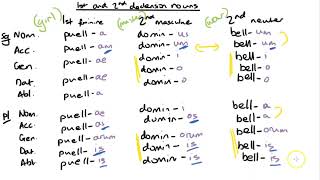 1st and 2nd declension nouns
(girl) (master) (war)
1st feminine 2nd masculine 2nd neuter
Sg Nom. puell-a domin-us bell-um
Acc. puell-am domin-um bell-um
Gen. puell-ae domin-i bell-i
Dat. puell-ae domin-o bell-o
Abl. puell-a domin-o bell-o
Pl Nom. puell-ae domin-i bell-a
Acc. puell-as domin-os bell-a
Gen. puell-arum domin-orum bell-orum
Dat puell-is domin-is bell-is
Abl. puell-is domin-is bell-is